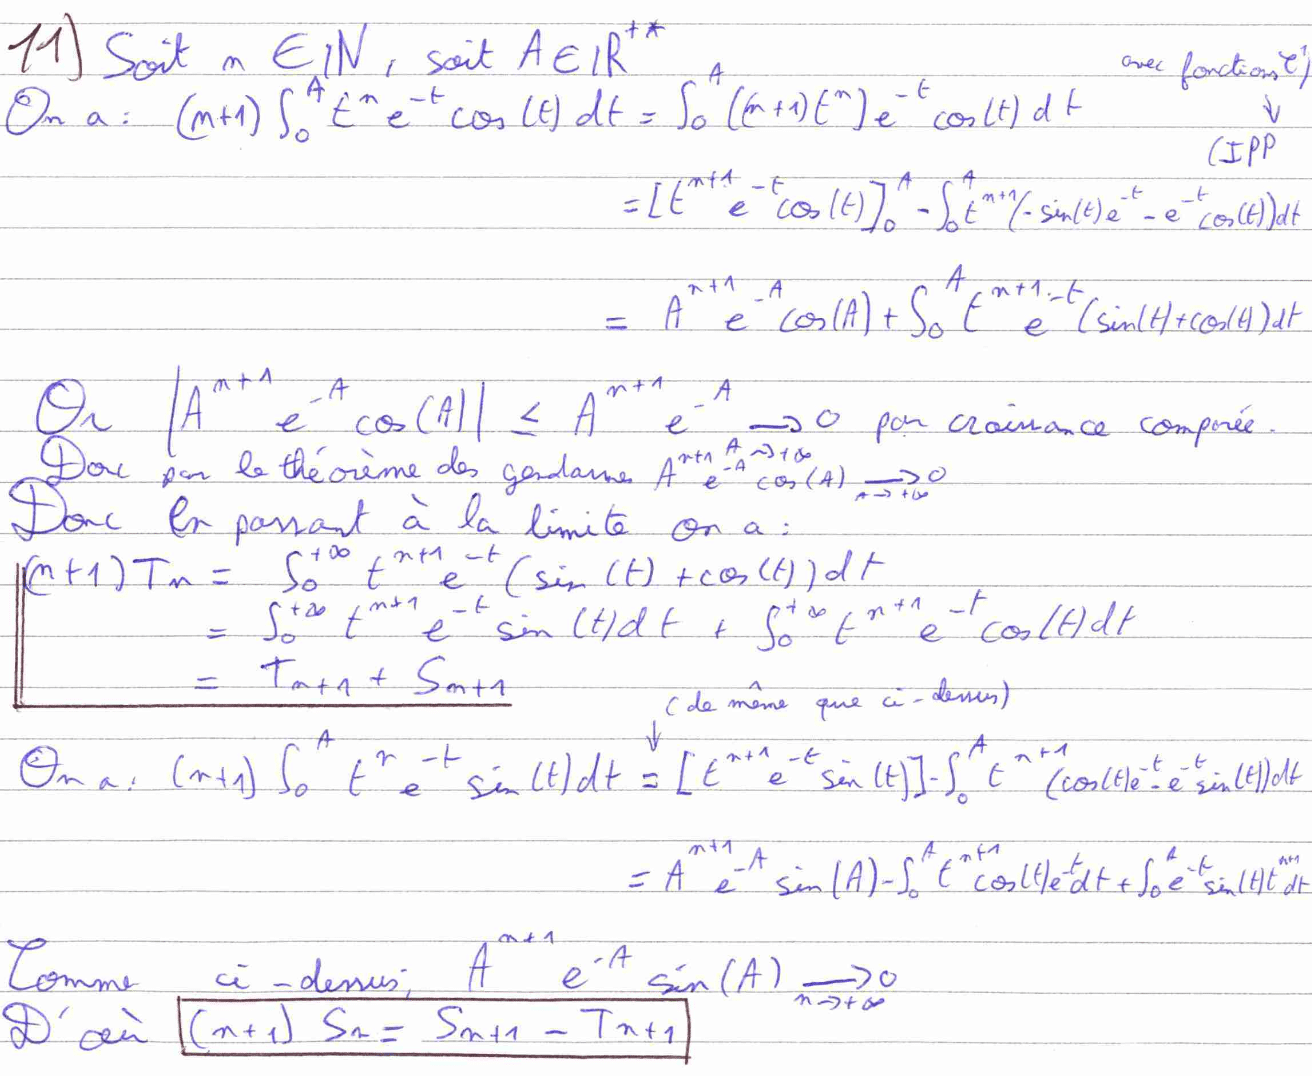 11) Soit n ∈ ℕ, soit A ∈ ℝ⁺*
avec fonctions C¹)
On a : (n+1) ∫₀ᴬ tⁿ e⁻ᵗ cos(t) dt = ∫₀ᴬ ((n+1)tⁿ) e⁻ᵗ cos(t) dt ↓
(IPP
= [tⁿ⁺¹ e⁻ᵗ cos(t)]₀ᴬ - ∫₀ᴬ tⁿ⁺¹(-sin(t)e⁻ᵗ - e⁻ᵗ cos(t))dt
= Aⁿ⁺¹ e⁻ᴬ cos(A) + ∫₀ᴬ tⁿ⁺¹ e⁻ᵗ (sin(t)+cos(t))dt
Or |Aⁿ⁺¹ e⁻ᴬ cos(A)| ≤ Aⁿ⁺¹ e⁻ᴬ → 0 par croissance comparée.
A→+∞
Donc par le théorème des gendarmes Aⁿ⁺¹ e⁻ᴬ cos(A) → 0
A→+∞
Donc en passant à la limite on a :
(n+1) Tn = ∫₀⁺∞ tⁿ⁺¹ e⁻ᵗ (sin(t) + cos(t)) dt
= ∫₀⁺∞ tⁿ⁺¹ e⁻ᵗ sin(t)dt + ∫₀⁺∞ tⁿ⁺¹ e⁻ᵗ cos(t)dt
= Tn+1 + Sn+1
(de même que ci-dessus)
↓
On a : (n+1) ∫₀ᴬ tⁿ e⁻ᵗ sin(t)dt = [tⁿ⁺¹ e⁻ᵗ sin(t)] - ∫₀ᴬ tⁿ⁺¹ (cos(t)e⁻ᵗ - e⁻ᵗ sin(t))dt
= Aⁿ⁺¹ e⁻ᴬ sin(A) - ∫₀ᴬ tⁿ⁺¹ cos(t)e⁻ᵗ dt + ∫₀ᴬ e⁻ᵗ sin(t)tⁿ⁺¹ dt
Comme ci-dessus, Aⁿ⁺¹ e⁻ᴬ sin(A) → 0
n→+∞
D'où (n+1) Sn = Sn+1 - Tn+1